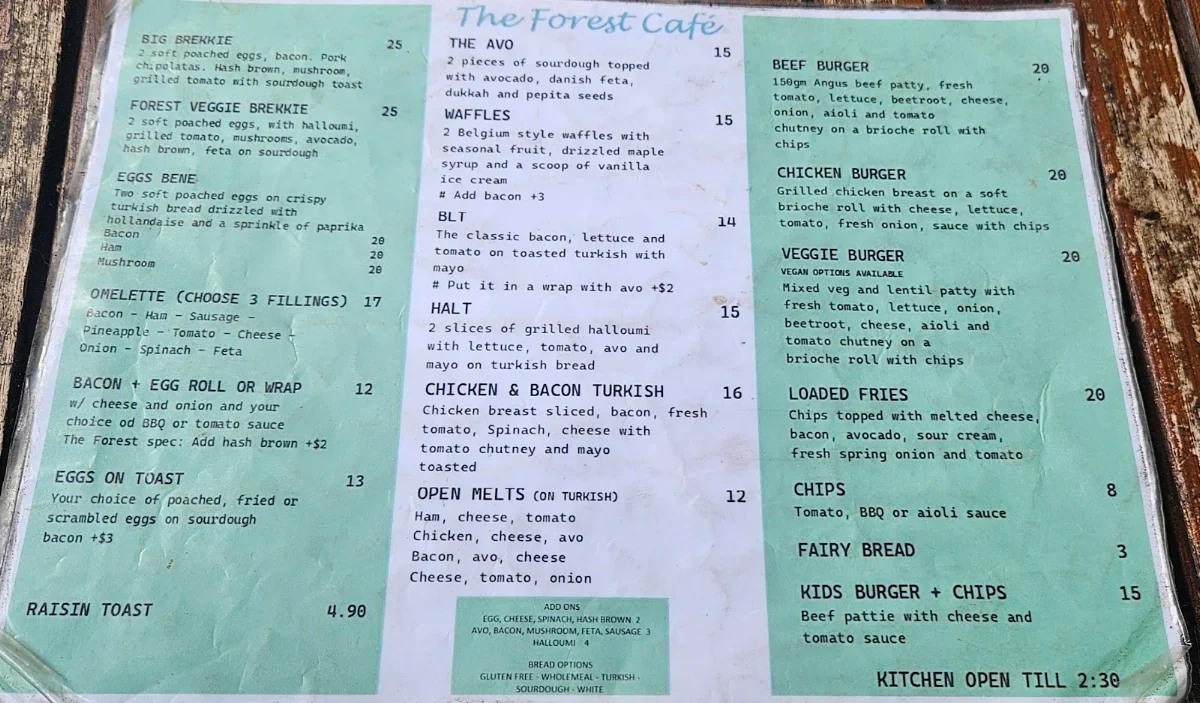 The Forest Café
BIG BREKKIE 25
2 soft poached eggs, bacon. Pork
chipolatas. Hash brown, mushroom,
grilled tomato with sourdough toast
FOREST VEGGIE BREKKIE 25
2 soft poached eggs, with halloumi,
grilled tomato, mushrooms, avocado,
hash brown, feta on sourdough
EGGS BENE
Two soft poached eggs on crispy
turkish bread drizzled with
hollandaise and a sprinkle of paprika
Bacon 20
Ham 20
Mushroom 20
OMELETTE (CHOOSE 3 FILLINGS) 17
Bacon - Ham - Sausage -
Pineapple - Tomato - Cheese -
Onion - Spinach - Feta
BACON + EGG ROLL OR WRAP 12
w/ cheese and onion and your
choice od BBQ or tomato sauce
The Forest spec: Add hash brown +$2
EGGS ON TOAST 13
Your choice of poached, fried or
scrambled eggs on sourdough
bacon +$3
RAISIN TOAST 4.90
THE AVO 15
2 pieces of sourdough topped
with avocado, danish feta,
dukkah and pepita seeds
WAFFLES 15
2 Belgium style waffles with
seasonal fruit, drizzled maple
syrup and a scoop of vanilla
ice cream
# Add bacon +3
BLT 14
The classic bacon, lettuce and
tomato on toasted turkish with
mayo
# Put it in a wrap with avo +$2
HALT 15
2 slices of grilled halloumi
with lettuce, tomato, avo and
mayo on turkish bread
CHICKEN & BACON TURKISH 16
Chicken breast sliced, bacon, fresh
tomato, Spinach, cheese with
tomato chutney and mayo
toasted
OPEN MELTS (ON TURKISH) 12
Ham, cheese, tomato
Chicken, cheese, avo
Bacon, avo, cheese
Cheese, tomato, onion
ADD ONS
EGG, CHEESE, SPINACH, HASH BROWN 2
AVO, BACON, MUSHROOM, FETA, SAUSAGE 3
HALLOUMI 4
BREAD OPTIONS
GLUTEN FREE - WHOLEMEAL - TURKISH -
SOURDOUGH - WHITE
BEEF BURGER 20
150gm Angus beef patty, fresh
tomato, lettuce, beetroot, cheese,
onion, aioli and tomato
chutney on a brioche roll with
chips
CHICKEN BURGER 20
Grilled chicken breast on a soft
brioche roll with cheese, lettuce,
tomato, fresh onion, sauce with chips
VEGGIE BURGER 20
VEGAN OPTIONS AVAILABLE
Mixed veg and lentil patty with
fresh tomato, lettuce, onion,
beetroot, cheese, aioli and
tomato chutney on a
brioche roll with chips
LOADED FRIES 20
Chips topped with melted cheese,
bacon, avocado, sour cream,
fresh spring onion and tomato
CHIPS 8
Tomato, BBQ or aioli sauce
FAIRY BREAD 3
KIDS BURGER + CHIPS 15
Beef pattie with cheese and
tomato sauce
KITCHEN OPEN TILL 2:30